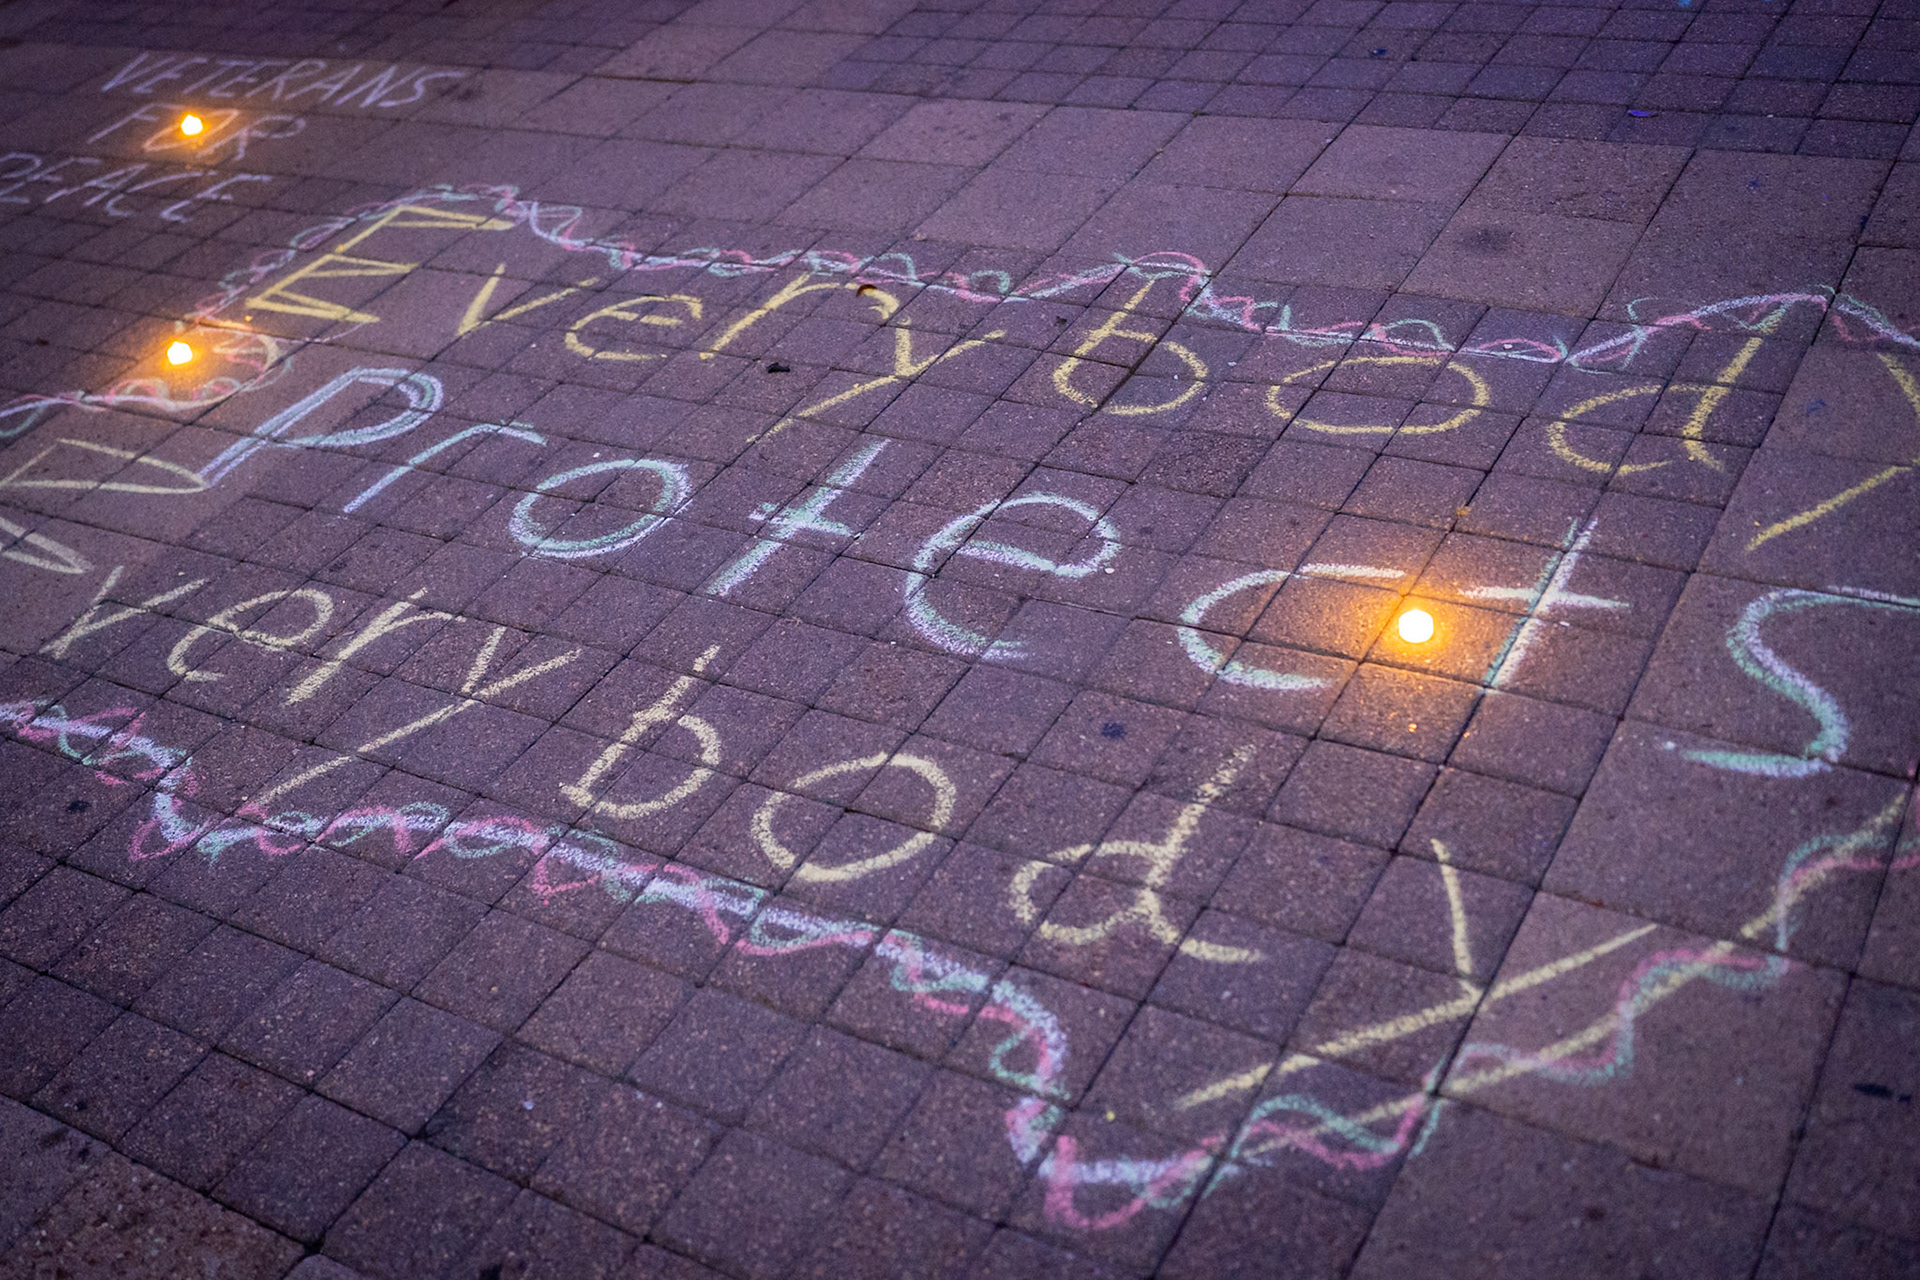 VETERANS
FOR
PEACE
Everybody
Protects
Everybody